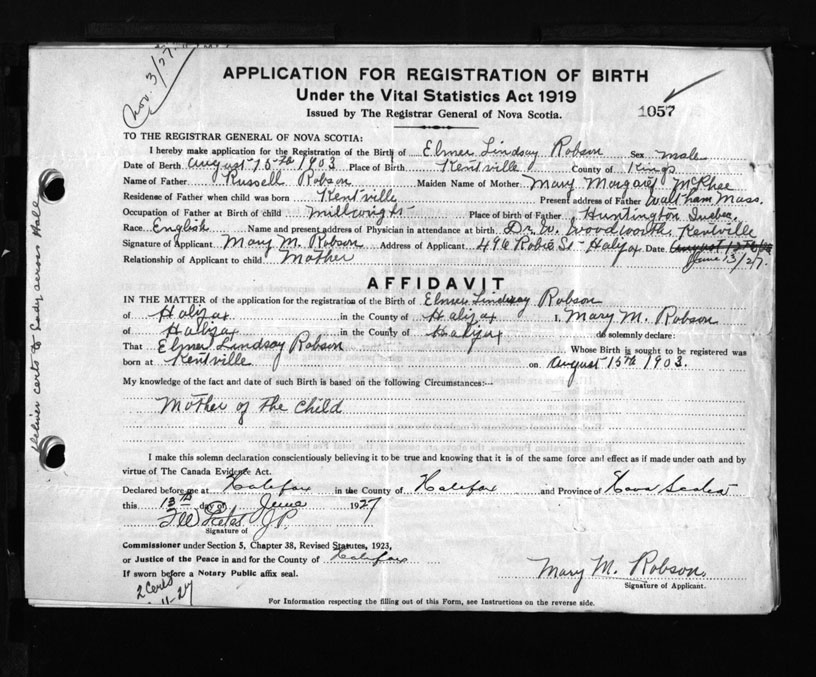 Nov. 3/27
APPLICATION FOR REGISTRATION OF BIRTH
Under the Vital Statistics Act 1919
Issued by The Registrar General of Nova Scotia.
1057
TO THE REGISTRAR GENERAL OF NOVA SCOTIA:
I hereby make application for the Registration of the Birth of Elmer Lindsay Robson Sex male
Date of Birth August 15th 1903 Place of Birth Kentville County of Kings
Name of Father Russell Robson Maiden Name of Mother Mary Margaret McPhee
Residense of Father when child was born Kentville Present address of Father Waltham Mass.
Occupation of Father at Birth of child millwright Place of birth of Father Huntington Quebec.
Race English Name and present address of Physician in attendance at birth Dr. W. Woodworth, Kentville
Signature of Applicant Mary M. Robson Address of Applicant 496 Robie St - Halifax Date
June 13/27.
Relationship of Applicant to child Mother
AFFIDAVIT
IN THE MATTER of the application for the registration of the Birth of Elmer Lindsay Robson
of Halifax in the County of Halifax I, Mary M. Robson
of Halifax in the County of Halifax do solemnly declare:
That Elmer Lindsay Robson Whose Birth is sought to be registered was
born at Kentville on August 15th 1903.
My knowledge of the fact and date of such Birth is based on the following Circumstances:—
Mother of the Child
I make this solemn declaration conscientiously believing it to be true and knowing that it is of the same force and effect as if made under oath and by
virtue of The Canada Evidence Act.
Declared before me at Halifax in the County of Halifax and Province of Nova Scotia
this 13th day of June 1927
J.P.
Signature of
Commissioner under Section 5, Chapter 38, Revised Statutes, 1923,
or Justice of the Peace in and for the County of Halifax
If sworn before a Notary Public affix seal.
Mary M. Robson.
Signature of Applicant.
2 Certs
11-27
For Information respecting the filling out of this Form, see Instructions on the reverse side.
Deliver certs to Lady across Hall